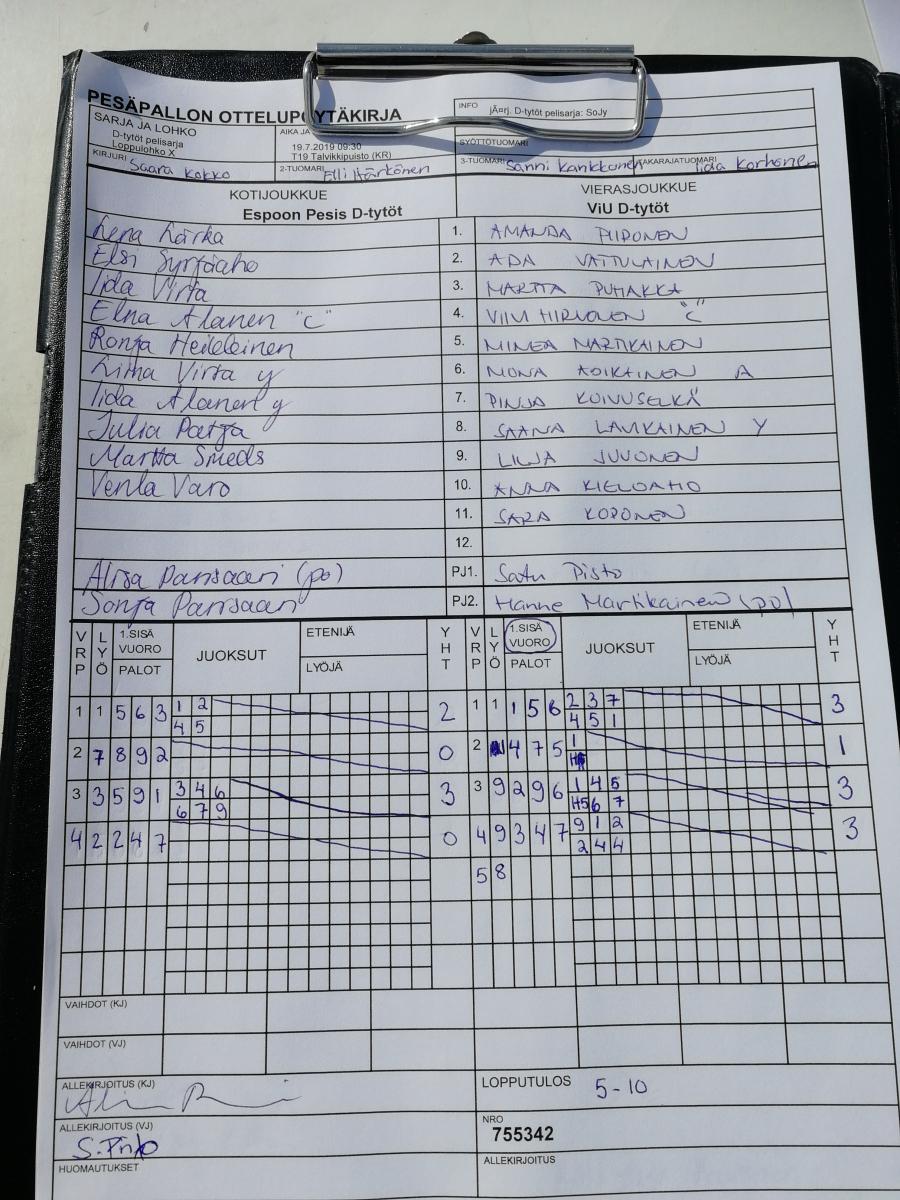 PESÄPALLON OTTELUPÖYTÄKIRJA
SARJA JA LOHKO
D-tytöt pelisarja
Loppulohko X
AIKA JA
19.7.2019 09:30
T19 Talvikkipuisto (KR)
INFO jÃ¤rj. D-tytöt pelisarja: SoJy
SYÖTTÖTUOMARI
KIRJURI Saara Kokko 2-TUOMARI Elli Härkönen 3-TUOMARI Sanni Kankkonen TAKARAJATUOMARI Iida Korhonen
KOTIJOUKKUE VIERASJOUKKUE
Espoon Pesis D-tytöt ViU D-tytöt
Lena Lärka 1. AMANDA PIIPONEN
Elsi Syrjäaho 2. ADA VATTULAINEN
Iida Virta 3. MARTTA PUHAKKA
Elna Alanen "C" 4. VIIVI HIRVONEN "C"
Ronja Heileleinen 5. MINEA MARTIKAINEN
Virta y 6. MONA KOIKAINEN A
Iida Alanen y 7. PINJA KOIVUSELKÄ
Julia Patja 8. SAANA LAVIKAINEN Y
Martta Smeds 9. LILJA JUVONEN
Venla Varo 10. ANNA KIELOAHO
11. SARA KOPONEN
12.
Alisa Parrsaari (po) PJ1. Satu Pisto
Sonja Parrsaari PJ2. Hanne Martikainen (po)
VRP LYÖ 1.SISÄ VUORO PALOT JUOKSUT ETENIJÄ LYÖJÄ YHT VRP LYÖ 1.SISÄ VUORO PALOT JUOKSUT ETENIJÄ LYÖJÄ YHT
1 1 5 6 3 1 2 2 1 1 1 5 6 2 3 7 3
4 5 4 5 1
2 7 8 9 2 0 2 4 7 5 1 1
3 3 5 9 1 3 4 6 3 3 9 2 9 6 1 4 5 3
6 7 9 H5 6 7
4 2 2 4 7 0 4 9 3 4 7 9 1 2 3
2 4 4
5 8
VAIHDOT (KJ)
VAIHDOT (VJ)
ALLEKIRJOITUS (KJ) LOPPUTULOS 5-10
ALLEKIRJOITUS (VJ) S. Pisto NRO
755342
HUOMAUTUKSET ALLEKIRJOITUS